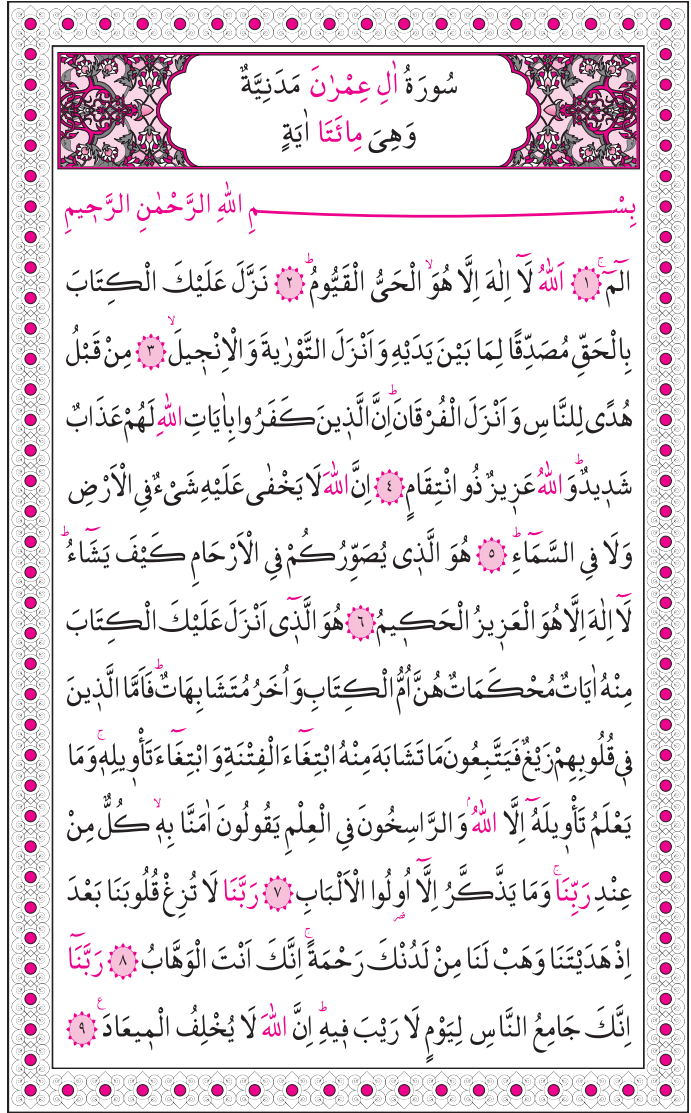 سُورَةُ اٰلِ عِمْرٰنَ مَدَنِيَّةٌ
وَهِيَ مِائَتَا اٰيَةٍ
بِسْمِ اللّٰهِ الرَّحْمٰنِ الرَّحٖيمِ
الٓمٓۚ ﴿١﴾ اَللّٰهُ لَٓا اِلٰهَ اِلَّا هُوَۙ الْحَيُّ الْقَيُّومُؕ ﴿٢﴾ نَزَّلَ عَلَيْكَ الْكِتَابَ
بِالْحَقِّ مُصَدِّقًا لِمَا بَيْنَ يَدَيْهِ وَاَنْزَلَ التَّوْرٰيةَ وَالْاِنْجٖيلَۙ ﴿٣﴾ مِنْ قَبْلُ
هُدًى لِلنَّاسِ وَاَنْزَلَ الْفُرْقَانَؕ اِنَّ الَّذٖينَ كَفَرُوا بِاٰيَاتِ اللّٰهِ لَهُمْ عَذَابٌ
شَدٖيدٌؕ وَاللّٰهُ عَزٖيزٌ ذُو انْتِقَامٍ ﴿٤﴾ اِنَّ اللّٰهَ لَا يَخْفٰى عَلَيْهِ شَیْءٌ فِي الْاَرْضِ
وَلَا فِي السَّمَٓاءِؕ ﴿٥﴾ هُوَ الَّذٖى يُصَوِّرُكُمْ فِي الْاَرْحَامِ كَيْفَ يَشَٓاءُؕ
لَٓا اِلٰهَ اِلَّا هُوَ الْعَزٖيزُ الْحَكٖيمُ ﴿٦﴾ هُوَ الَّذٖٓى اَنْزَلَ عَلَيْكَ الْكِتَابَ
مِنْهُ اٰيَاتٌ مُحْكَمَاتٌ هُنَّ اُمُّ الْكِتَابِ وَاُخَرُ مُتَشَابِهَاتٌؕ فَاَمَّا الَّذٖينَ
فٖى قُلُوبِهِمْ زَيْغٌ فَيَتَّبِعُونَ مَا تَشَابَهَ مِنْهُ ابْتِغَٓاءَ الْفِتْنَةِ وَابْتِغَٓاءَ تَأْوٖيلِهٖۚ وَمَا
يَعْلَمُ تَأْوٖيلَهُٓ اِلَّا اللّٰهُۘ وَالرَّاسِخُونَ فِي الْعِلْمِ يَقُولُونَ اٰمَنَّا بِهٖۙ كُلٌّ مِنْ
عِنْدِ رَبِّنَاۚ وَمَا يَذَّكَّرُ اِلَّٓا اُولُوا الْاَلْبَابِ ﴿٧﴾ رَبَّنَا لَا تُزِغْ قُلُوبَنَا بَعْدَ
اِذْ هَدَيْتَنَا وَهَبْ لَنَا مِنْ لَدُنْكَ رَحْمَةًۚ اِنَّكَ اَنْتَ الْوَهَّابُ ﴿٨﴾ رَبَّنَٓا
اِنَّكَ جَامِعُ النَّاسِ لِيَوْمٍ لَا رَيْبَ فٖيهِؕ اِنَّ اللّٰهَ لَا يُخْلِفُ الْمٖيعَادَ ﴿٩﴾